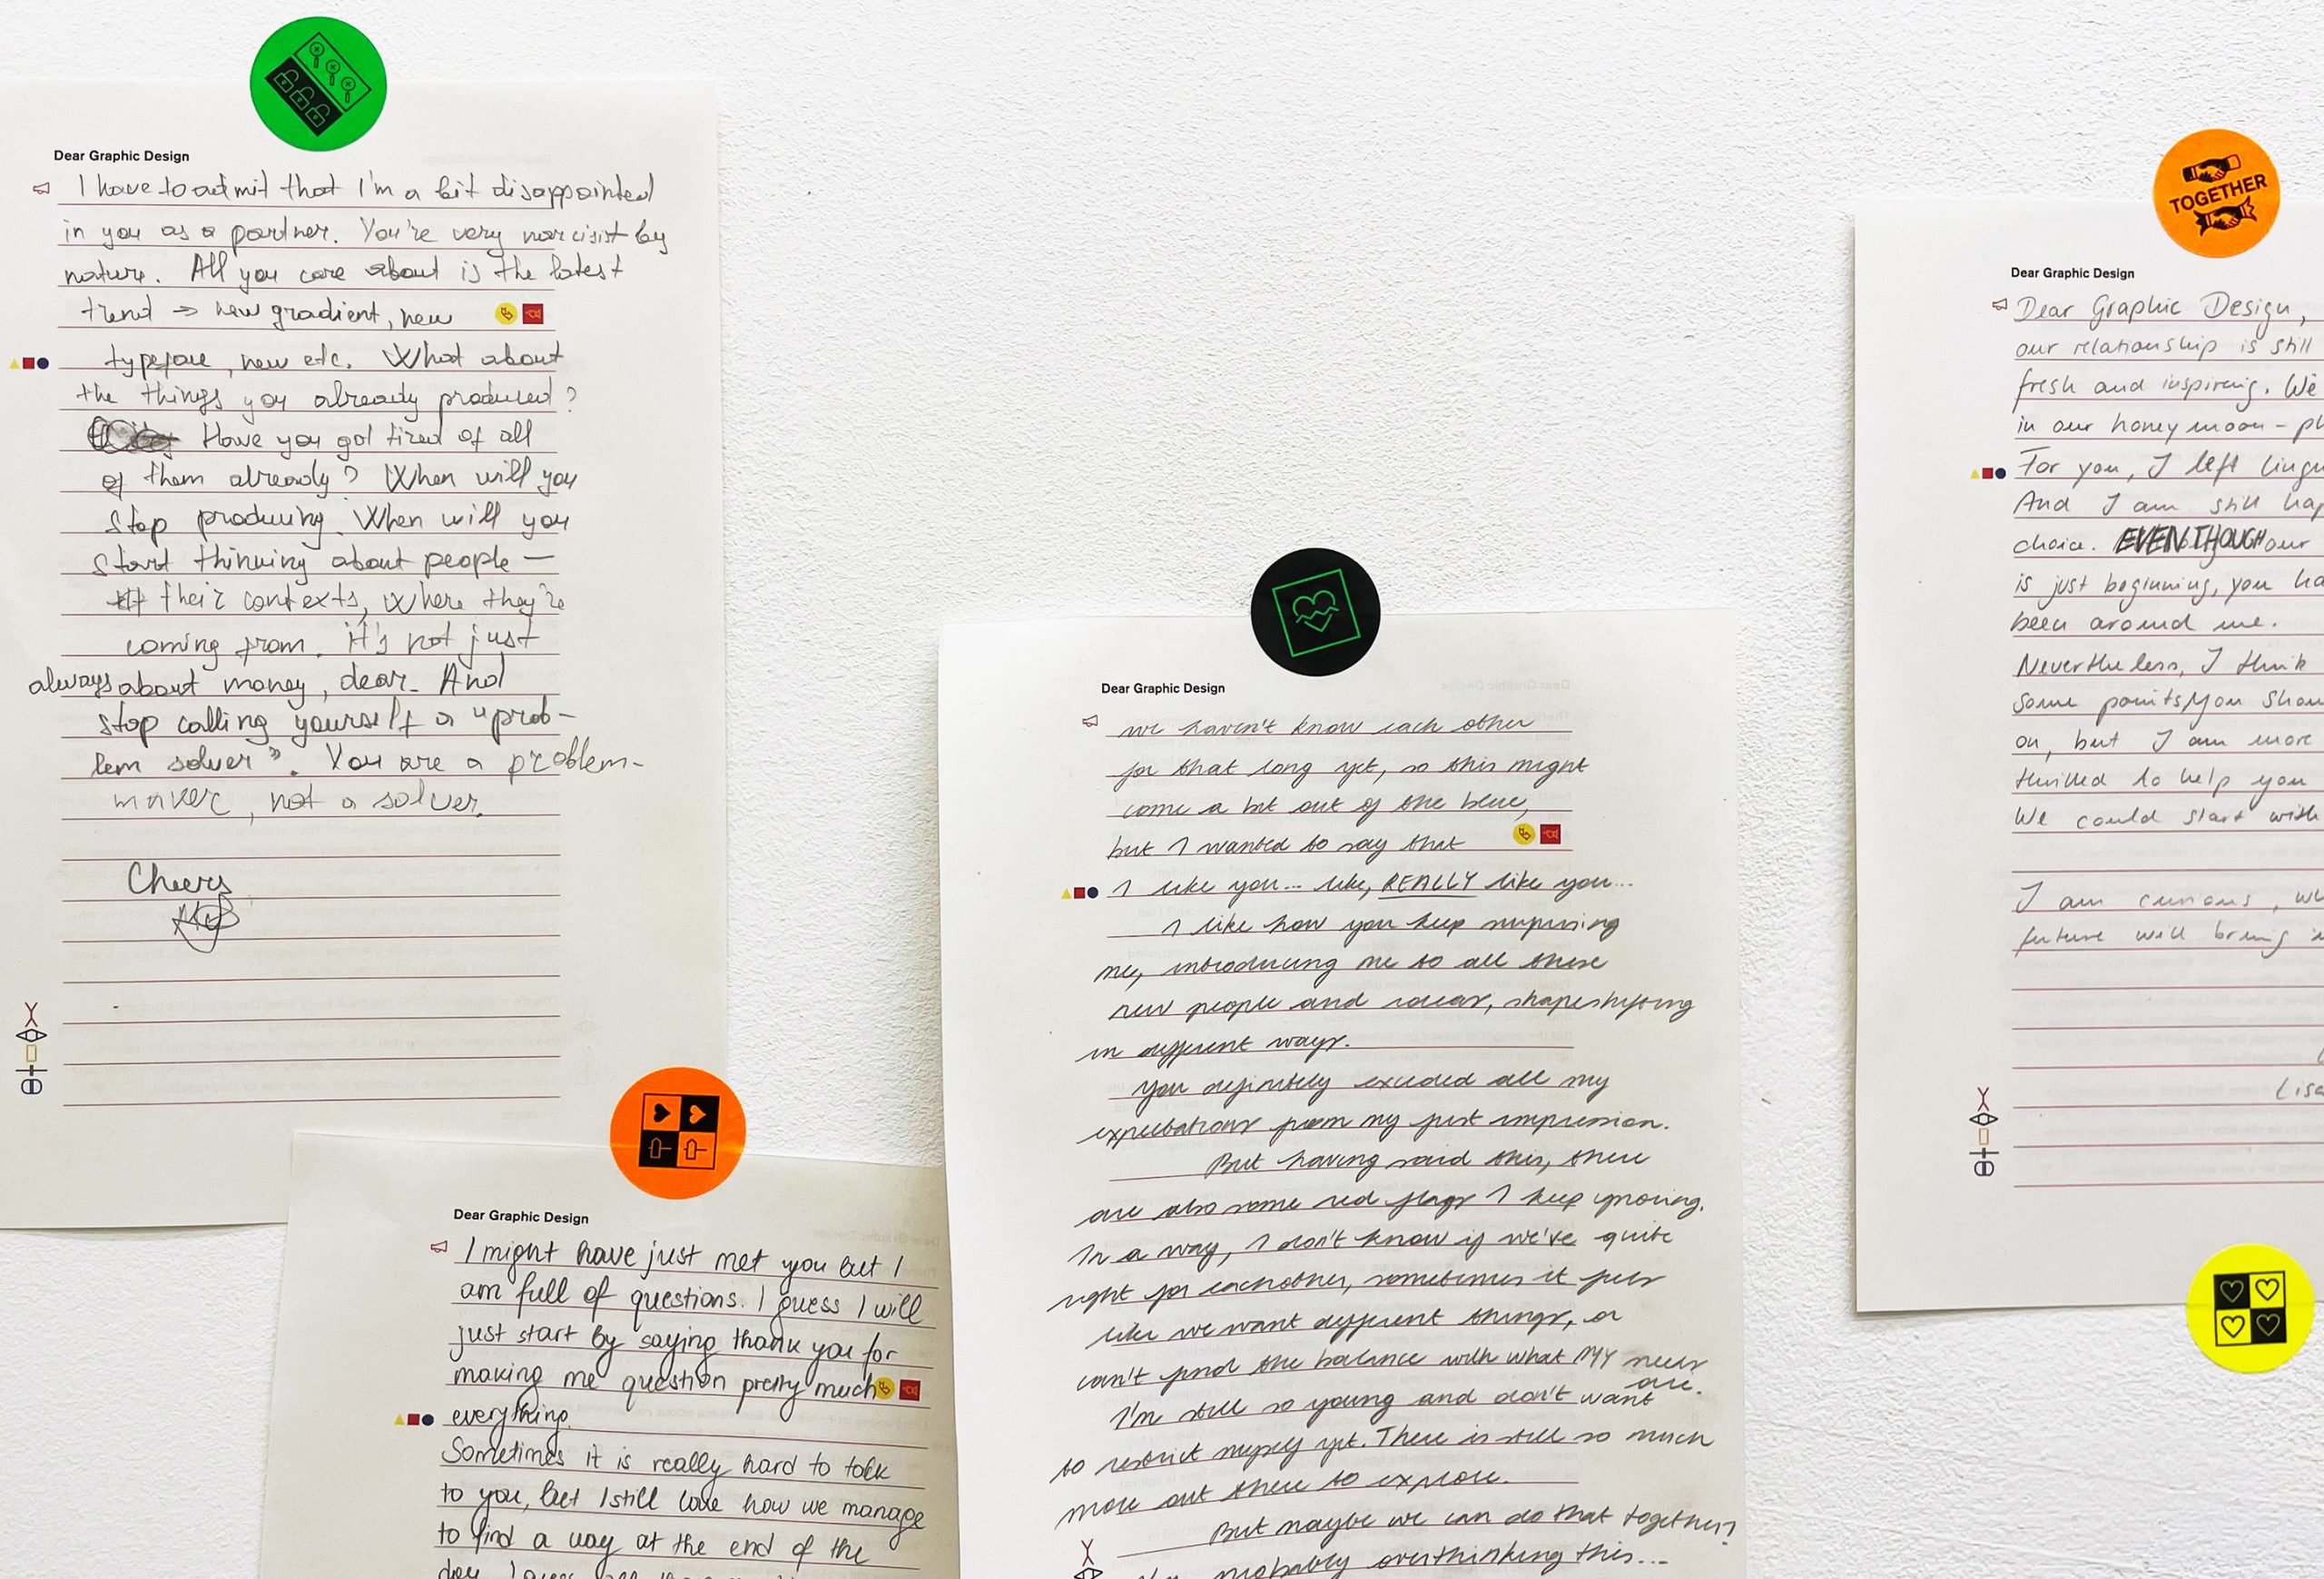 Dear Graphic Design
I have to admit that I'm a bit disappointed
in you as a partner. You're very narcisist by
nature. All you care about is the latest
trend → new gradient, new
typeface, new etc. What about
the things you already produced?
Have you got tired of all
of them already? When will you
stop producing. When will you
start thinking about people —
their contexts, where they're
coming from. it's not just
always about money, dear. And
stop calling yourself a "prob-
lem solver". You are a problem-
maker, not a solver.
Cheers
Dear Graphic Design
I might have just met you but I
am full of questions. I guess I will
just start by saying thank you for
making me question pretty much
everything.
Sometimes it is really hard to talk
to you, but I still love how we manage
to find a way at the end of the
day. I guess all
Dear Graphic Design
we haven't know each other
for that long yet, so this might
come a bit out of the blue,
but I wanted to say that
I like you... like, REALLY like you...
I like how you keep surprising
me, introducing me to all these
new people and ideas, shapeshifting
in different ways.
You definitely exceded all my
expectations from my first impression.
But having said this, there
are also some red flags I keep ignoring.
In a way, I don't know if we've quite
right for eachother, sometimes it feels
like we want different things, or
can't find the balance with what MY needs
are.
I'm still so young and don't want
to restrict myself yet. There is still so much
more out there to explore.
But maybe we can do that together?
I'm probably overthinking this...
TOGETHER
Dear Graphic Design
Dear Graphic Design,
our relationship is still
fresh and inspiring. We
in our honeymoon - ph
For you, I left lingu
And I am still hap
choice. EVEN THOUGH our
is just beginning, you ha
been around me.
Nevertheless, I think
some points you shou
on, but I am more
thrilled to help you
We could start with
I am curious, wh
future will bring
Lisa